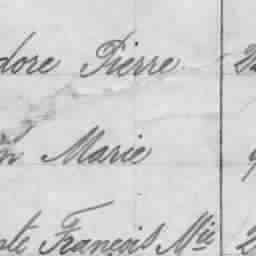 dore Pierre 2
n Marie
te François Mie 2